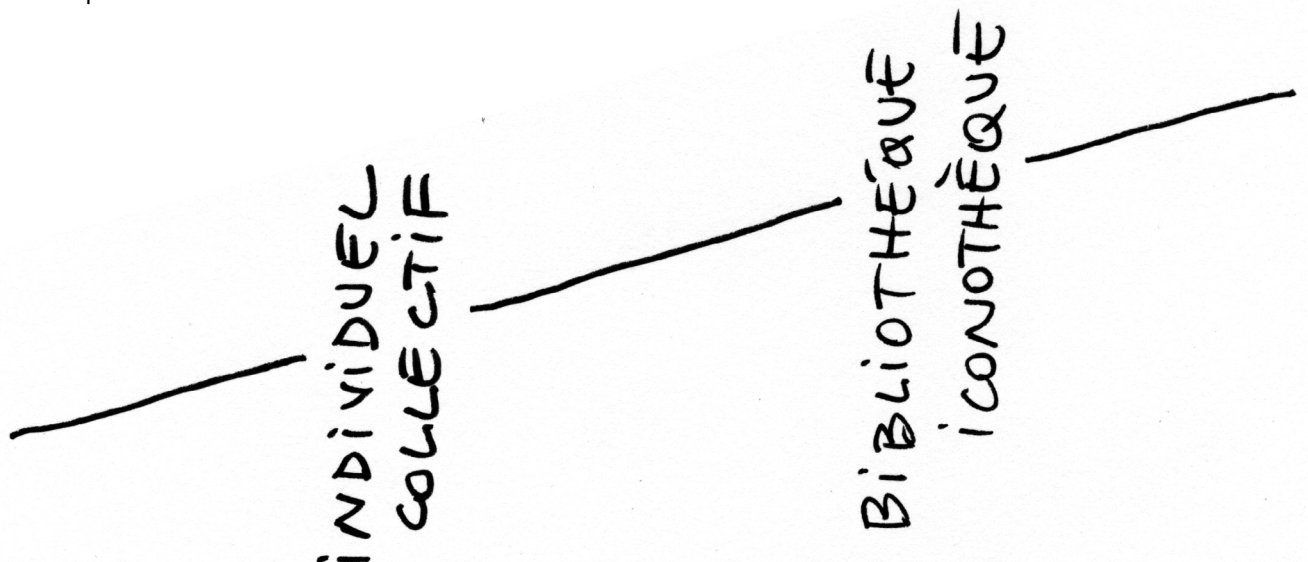 iNDiViDUEL
COLLECTiF
BiBLiOTHÉQUE
iCONOTHÈQUE